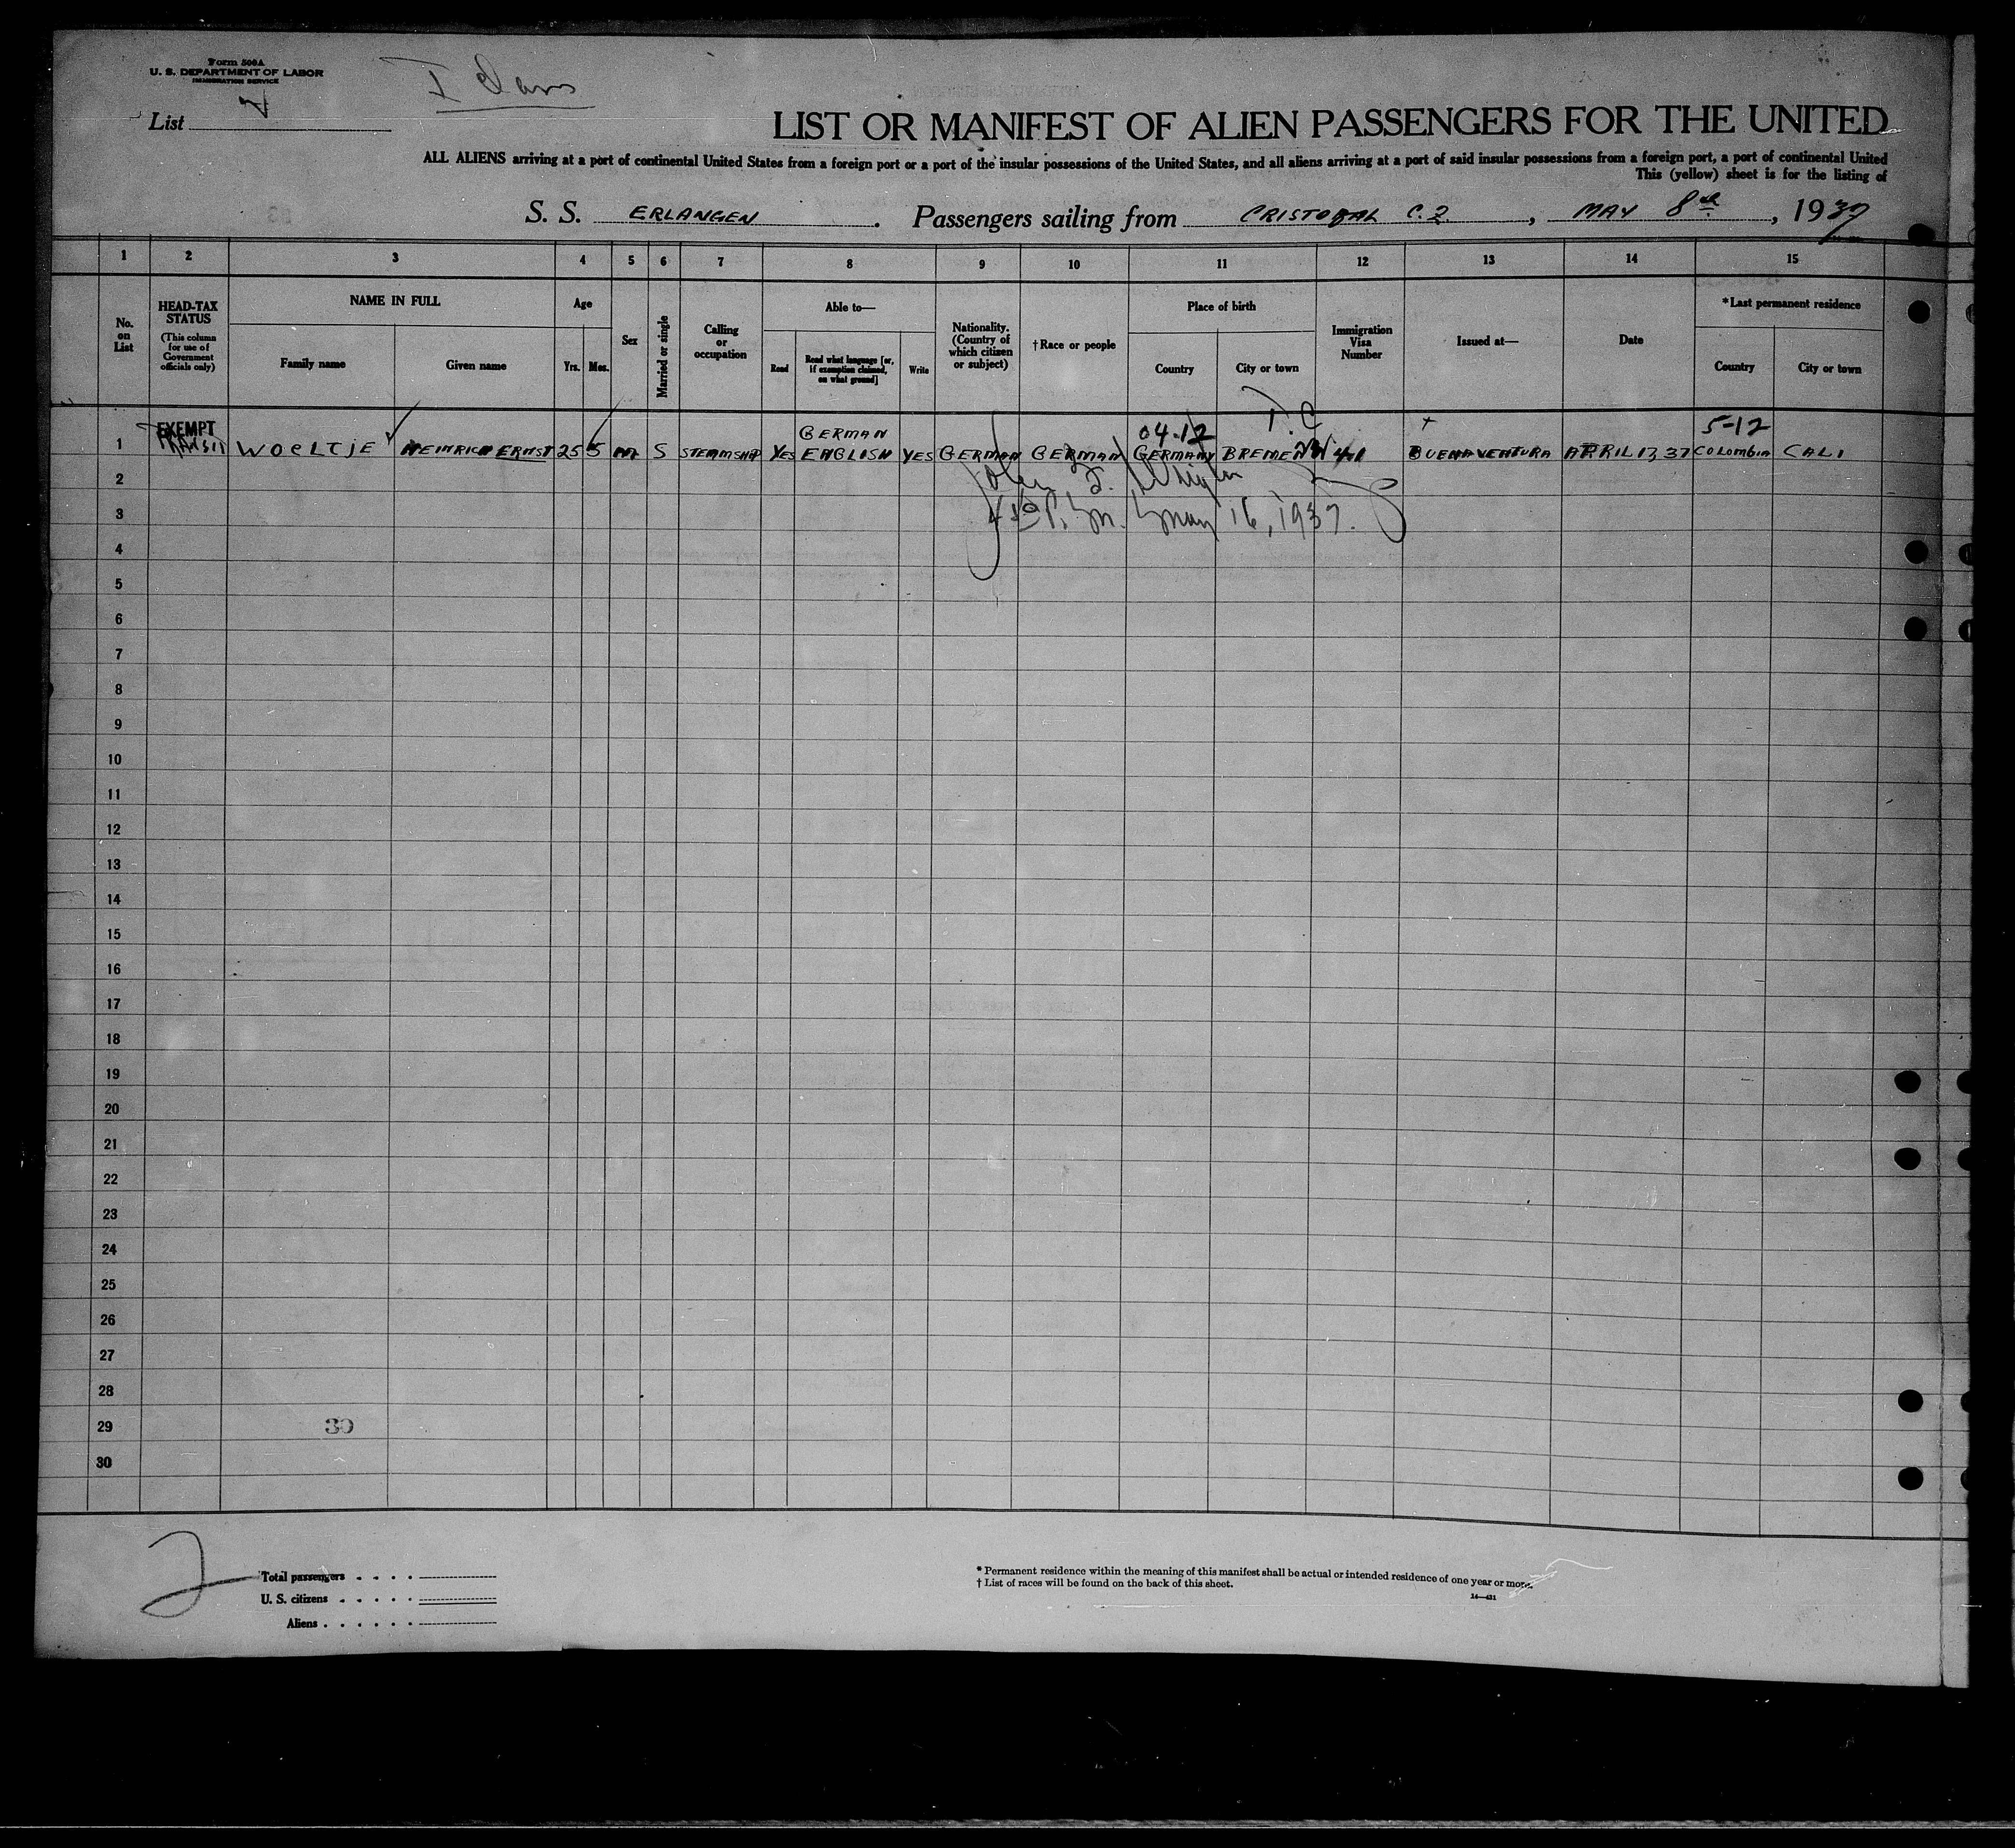 Form 500A
U. S. DEPARTMENT OF LABOR
IMMIGRATION SERVICE
List
LIST OR MANIFEST OF ALIEN PASSENGERS FOR THE UNITED
ALL ALIENS arriving at a port of continental United States from a foreign port or a port of the insular possessions of the United States, and all aliens arriving at a port of said insular possessions from a foreign port, a port of continental United
This (yellow) sheet is for the listing of
S. S. ERLANGEN. Passengers sailing from CRISTOBAL C.Z., MAY 8th, 1937
1 2 3 4 5 6 7 8 9 10 11 12 13 14 15
No. on List
HEAD-TAX STATUS
(This column for use of Government officials only)
NAME IN FULL
Family name
Given name
Age
Yrs.
Mos.
Sex
Married or single
Calling or occupation
Able to—
Read
Read what language [or, if exemption claimed, on what ground]
Write
Nationality. (Country of which citizen or subject)
†Race or people
Place of birth
Country
City or town
Immigration Visa Number
Issued at—
Date
*Last permanent residence
Country
City or town
EXEMPT
GERMAN
04-12
T.C
5-12
1 TRANSIT WOELTJE HEINRICH ERNST 25 5 M S STEAMSHIP YES ENGLISH YES GERMAN GERMAN GERMANY BREMEN 41 BUENAVENTURA APRIL 13, 37 COLOMBIA CALI
2
3 P. M. May 16, 1937.
4
5
6
7
8
9
10
11
12
13
14
15
16
17
18
19
20
21
22
23
24
25
26
27
28
29 30
30
2
Total passengers
U. S. citizens
Aliens
* Permanent residence within the meaning of this manifest shall be actual or intended residence of one year or more.
† List of races will be found on the back of this sheet.
14—431